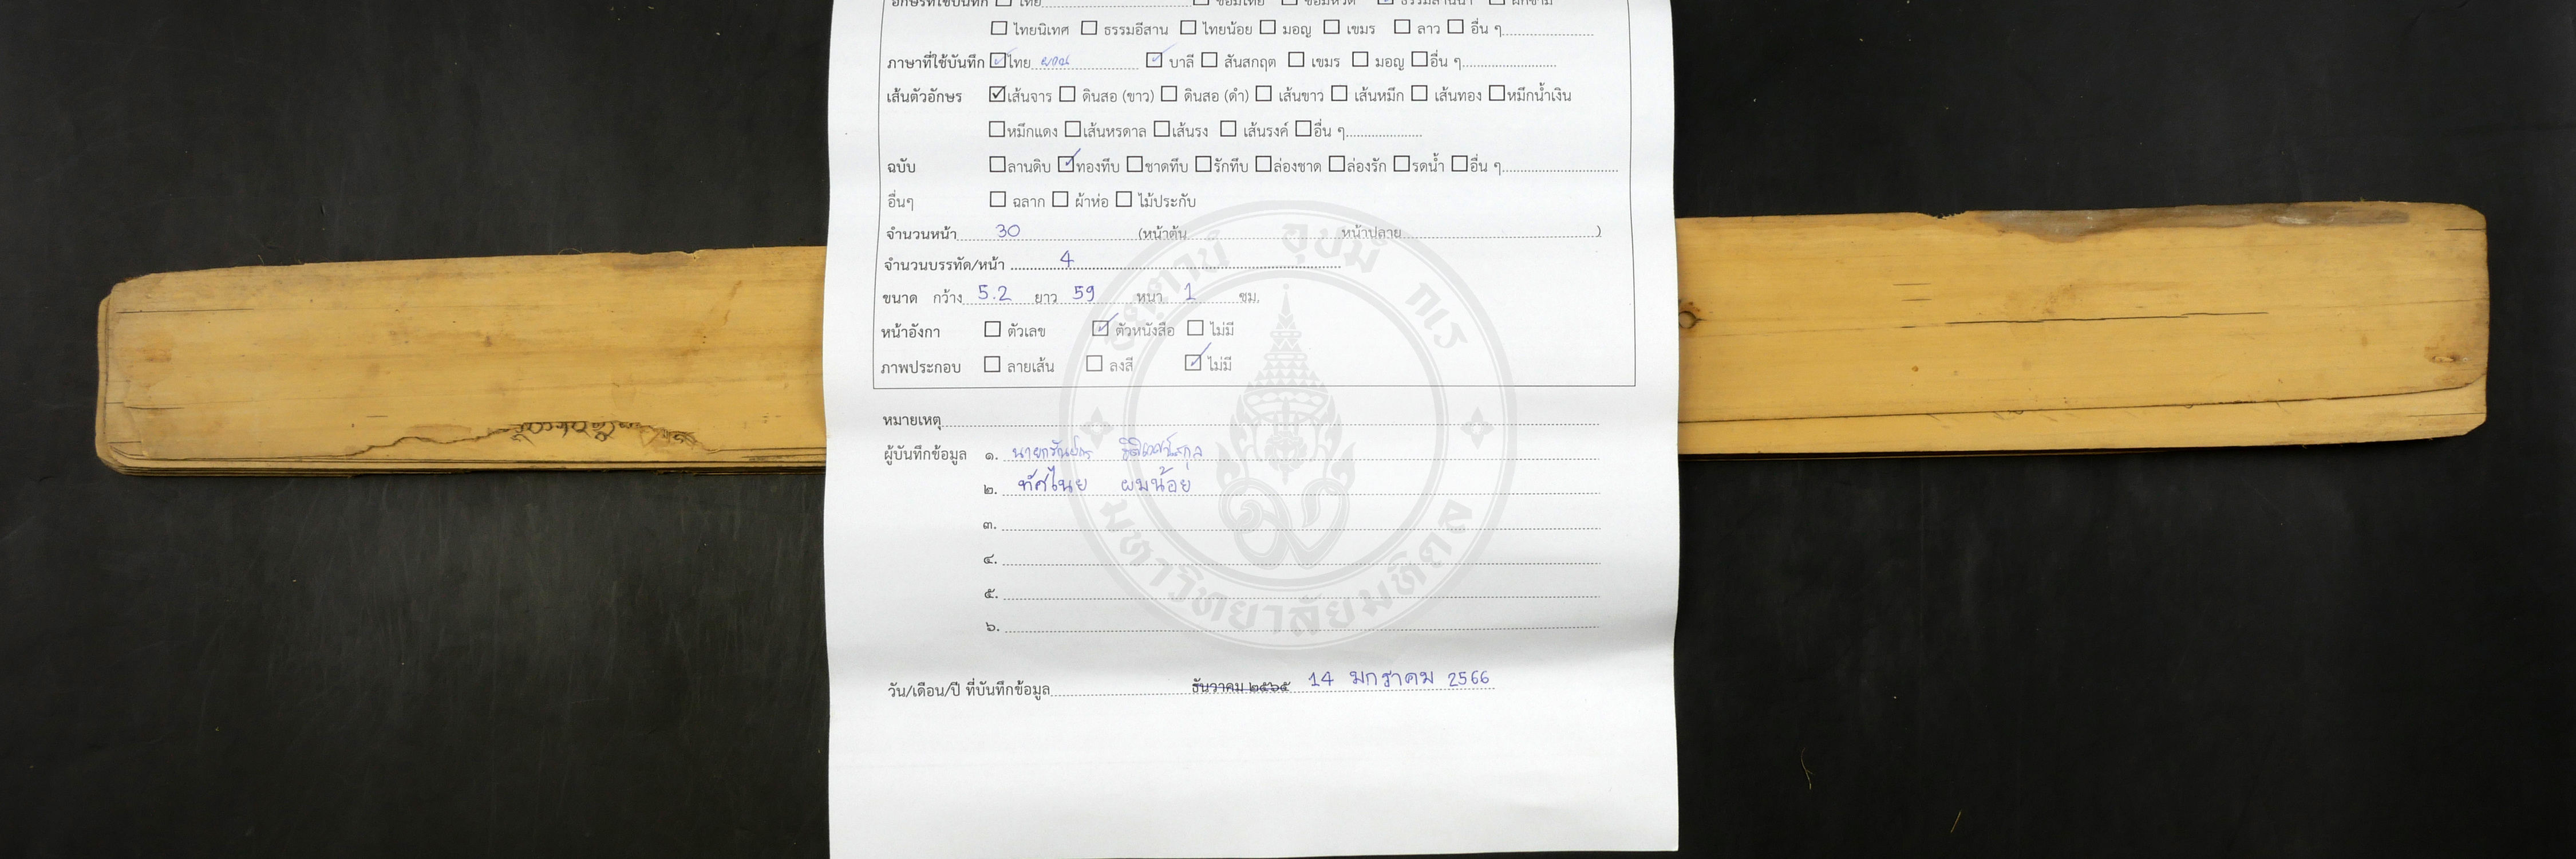 อักษรที่ใช้บันทึก ☐ ไทย.................... ☐ ขอมไทย ☐ ขอมหวัด ☑ ธรรมล้านนา ☐ ฝักขาม
☐ ไทยนิเทศ ☐ ธรรมอีสาน ☐ ไทยน้อย ☐ มอญ ☐ เขมร ☐ ลาว ☐ อื่น ๆ....................
ภาษาที่ใช้บันทึก ☑ ไทย.................... ☑ บาลี ☐ สันสกฤต ☐ เขมร ☐ มอญ ☐ อื่น ๆ....................
เส้นตัวอักษร ☑ เส้นจาร ☐ ดินสอ (ขาว) ☐ ดินสอ (ดำ) ☐ เส้นขาว ☐ เส้นหมึก ☐ เส้นทอง ☐ หมึกน้ำเงิน
☐ หมึกแดง ☐ เส้นหรดาล ☐ เส้นรง ☐ เส้นรงค์ ☐ อื่น ๆ....................
ฉบับ ☐ ลานดิบ ☑ ทองทึบ ☐ ชาดทึบ ☐ รักทึบ ☐ ล่องชาด ☐ ล่องรัก ☐ รดน้ำ ☐ อื่น ๆ....................
อื่นๆ ☐ ฉลาก ☐ ผ้าห่อ ☐ ไม้ประกับ
จำนวนหน้า 30 (หน้าต้น....................หน้าปลาย....................)
จำนวนบรรทัด/หน้า 4
ขนาด กว้าง 5.2 ยาว 59 หนา 1 ซม.
หน้าอังกา ☐ ตัวเลข ☑ ตัวหนังสือ ☐ ไม่มี
ภาพประกอบ ☐ ลายเส้น ☐ ลงสี ☑ ไม่มี
หมายเหตุ....................
ผู้บันทึกข้อมูล ๑.
๒. ทัศไนย ผมน้อย
๓.
๔.
๕.
๖.
วัน/เดือน/ปี ที่บันทึกข้อมูล ธันวาคม ๒๕๖๕ 14 มกราคม 2566
อตฺตานํ อุปมํ กเร
มหาวิทยาลัยมหิดล